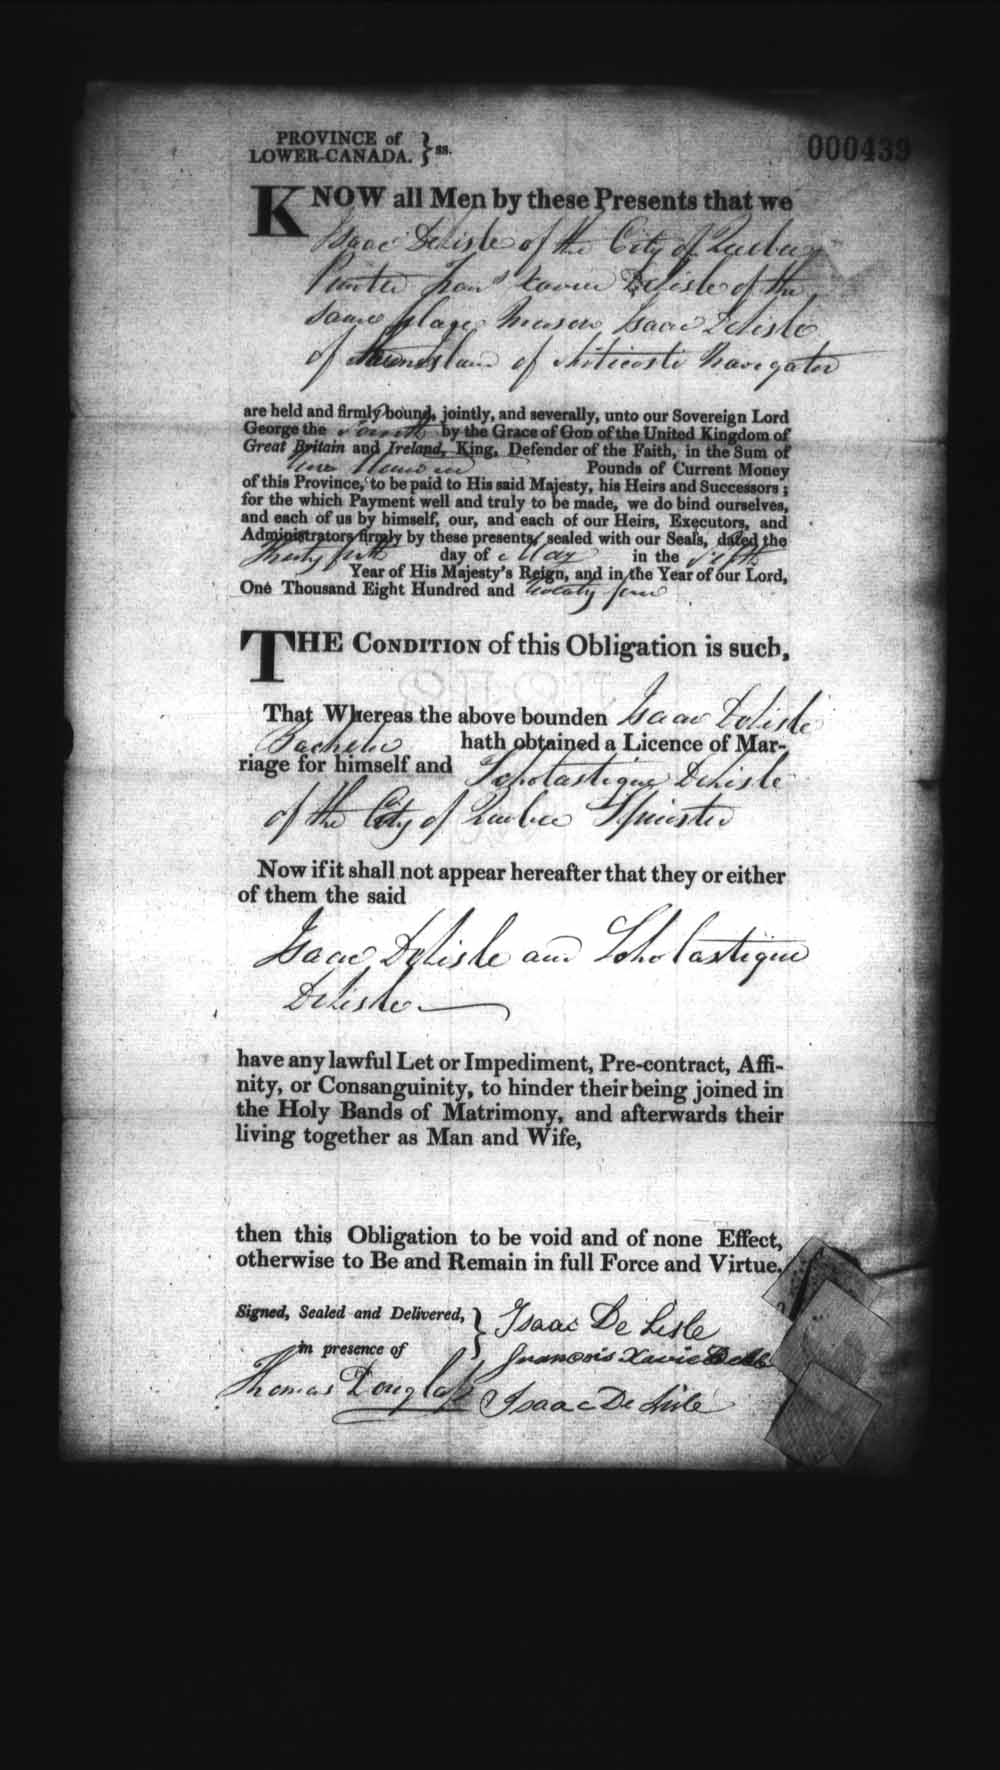 PROVINCE of
LOWER-CANADA. } ss.
000439
KNOW all Men by these Presents that we
Isaac Delisle of the City of Quebec
Painter Frans Xavier Delisle of the
same place Mason Isaac Delisle
of the Island of Anticosti Navigator
are held and firmly bound, jointly, and severally, unto our Sovereign Lord
George the Fourth by the Grace of GOD of the United Kingdom of
Great Britain and Ireland, King, Defender of the Faith, in the Sum of
Pounds of Current Money
of this Province, to be paid to His said Majesty, his Heirs and Successors;
for the which Payment well and truly to be made, we do bind ourselves,
and each of us by himself, our, and each of our Heirs, Executors, and
Administrators firmly by these presents, sealed with our Seals, dated the
day of May in the fifth
Year of His Majesty's Reign, and in the Year of our Lord,
One Thousand Eight Hundred and twenty four
THE CONDITION of this Obligation is such,
That Whereas the above bounden Isaac Delisle
Bachelor hath obtained a Licence of Mar-
riage for himself and Scholastique Delisle
of the City of Quebec Spinster
Now if it shall not appear hereafter that they or either
of them the said
Isaac Delisle and Scholastique
Delisle
have any lawful Let or Impediment, Pre-contract, Affi-
nity, or Consanguinity, to hinder their being joined in
the Holy Bands of Matrimony, and afterwards their
living together as Man and Wife,
then this Obligation to be void and of none Effect,
otherwise to Be and Remain in full Force and Virtue.
Signed, Sealed and Delivered, } Isaac De Lisle
in presence of François Xavier
Thomas Douglass Isaac De Lisle